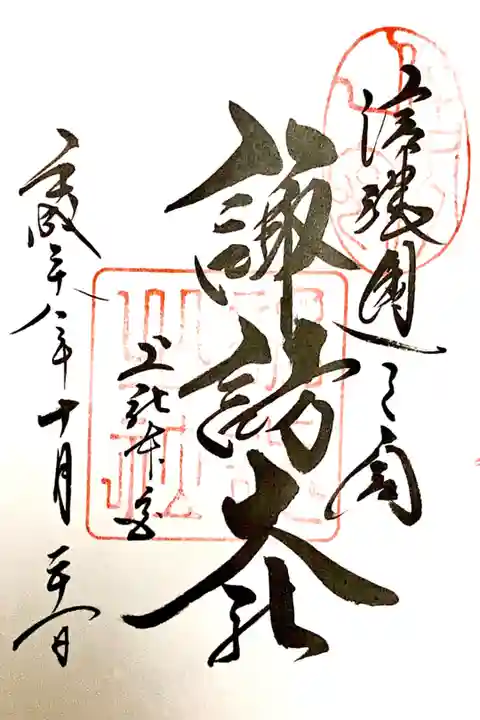 信濃國一之宮
諏訪大社
上社本宮
平成二十八年十月日